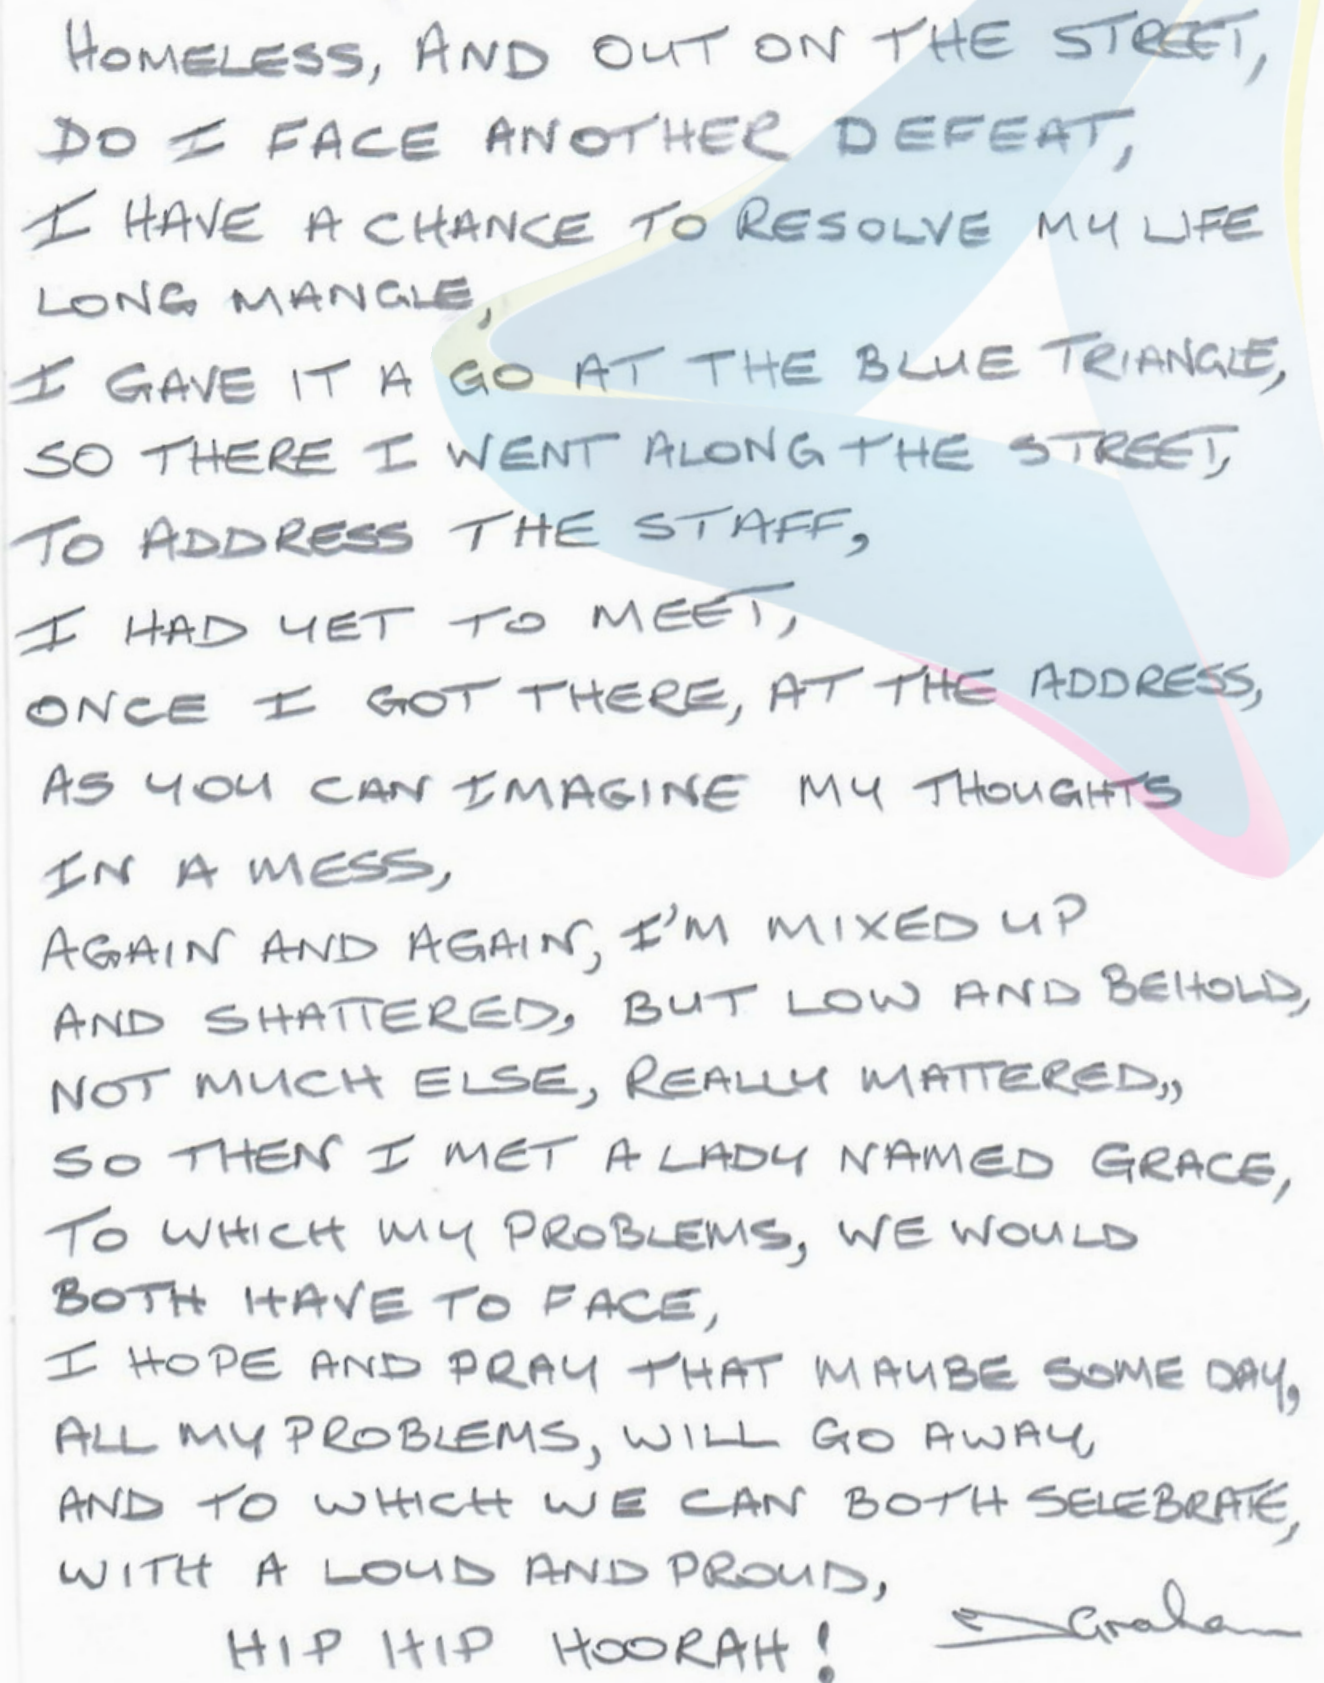 HOMELESS, AND OUT ON THE STREET,
DO I FACE ANOTHER DEFEAT,
I HAVE A CHANCE TO RESOLVE MY LIFE
LONG MANGLE,
I GAVE IT A GO AT THE BLUE TRIANGLE,
SO THERE I WENT ALONG THE STREET,
TO ADDRESS THE STAFF,
I HAD YET TO MEET,
ONCE I GOT THERE, AT THE ADDRESS,
AS YOU CAN IMAGINE MY THOUGHTS
IN A MESS,
AGAIN AND AGAIN, I'M MIXED UP
AND SHATTERED, BUT LOW AND BEHOLD,
NOT MUCH ELSE, REALLY MATTERED,,
SO THEN I MET A LADY NAMED GRACE,
TO WHICH MY PROBLEMS, WE WOULD
BOTH HAVE TO FACE,
I HOPE AND PRAY THAT MAYBE SOME DAY,
ALL MY PROBLEMS, WILL GO AWAY,
AND TO WHICH WE CAN BOTH SELEBRATE,
WITH A LOUD AND PROUD,
HIP HIP HOORAH!
Graham